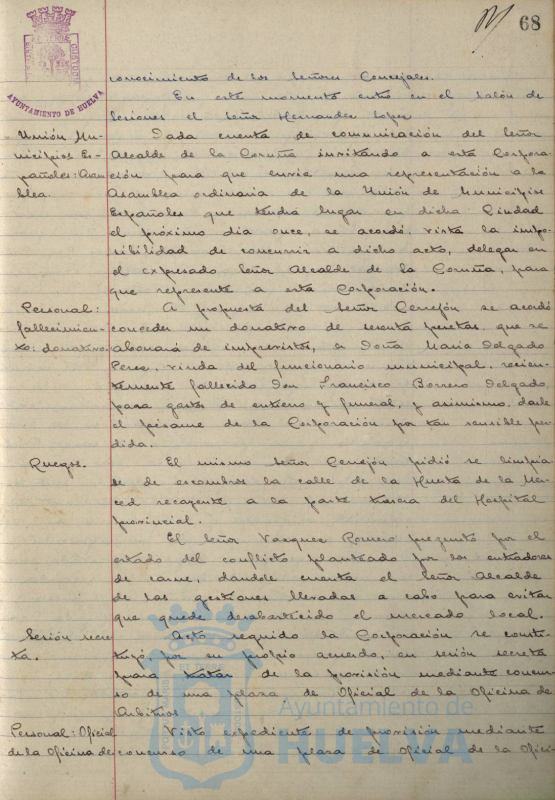 68
AYUNTAMIENTO DE HUELVA
conocimiento de los Señores Concejales.
En este momento entra en el salón de
sesiones el Señor Hernandez Lopez
Unión Mu-
nicipios Es-
pañoles: Asam-
blea.
Dada cuenta de comunicación del Señor
Alcalde de la Coruña invitando a esta Corpora-
ción para que envie una representación a la
Asamblea ordinaria de la Unión de Municipios
Españoles que tendrá lugar en dicha Ciudad
el próximo dia once, se acordó, vista la impo-
sibilidad de concurrir a dicho acto, delegar en
el expresado Señor Alcalde de la Coruña, para
que represente a esta Corporación.
Personal:
fallecimien-
to: donativo.
A propuesta del Señor Cerejón se acordó
conceder un donativo de pesetas, que se
abonará de imprevistos, a Doña Maria Delgado
Perez, viuda del funcionario municipal, recien-
temente fallecido Don Francisco Borrero Delgado,
para gastos de entierro y funeral, y asimismo, darle
el pésame de la Corporación por tan sensible per-
dida.
Ruegos.
El mismo Señor Cerejón pidió se limpia-
se de escombros la calle de la Huerta de la Mer-
ced recayente a la parte trasera del Hospital
provincial.
El Señor Vazquez Romero preguntó por el
estado del conflicto planteado por los entradores
de carne, dandole cuenta el Señor Alcalde
de las gestiones llevadas a cabo para evitar
que quede desabastecido el mercado local.
Sesión secre-
ta.
Acto seguido la Corporación se consti-
tuyó, por su propio acuerdo, en sesión secreta
para tratar de la provisión mediante concur-
so de una plaza de Oficial de la Oficina de
Arbitrios
Personal: Oficial
de la Oficina de
Visto expediente de provisión mediante
concurso de una plaza de Oficial de la Ofici-
Ayuntamiento de
HUELVA